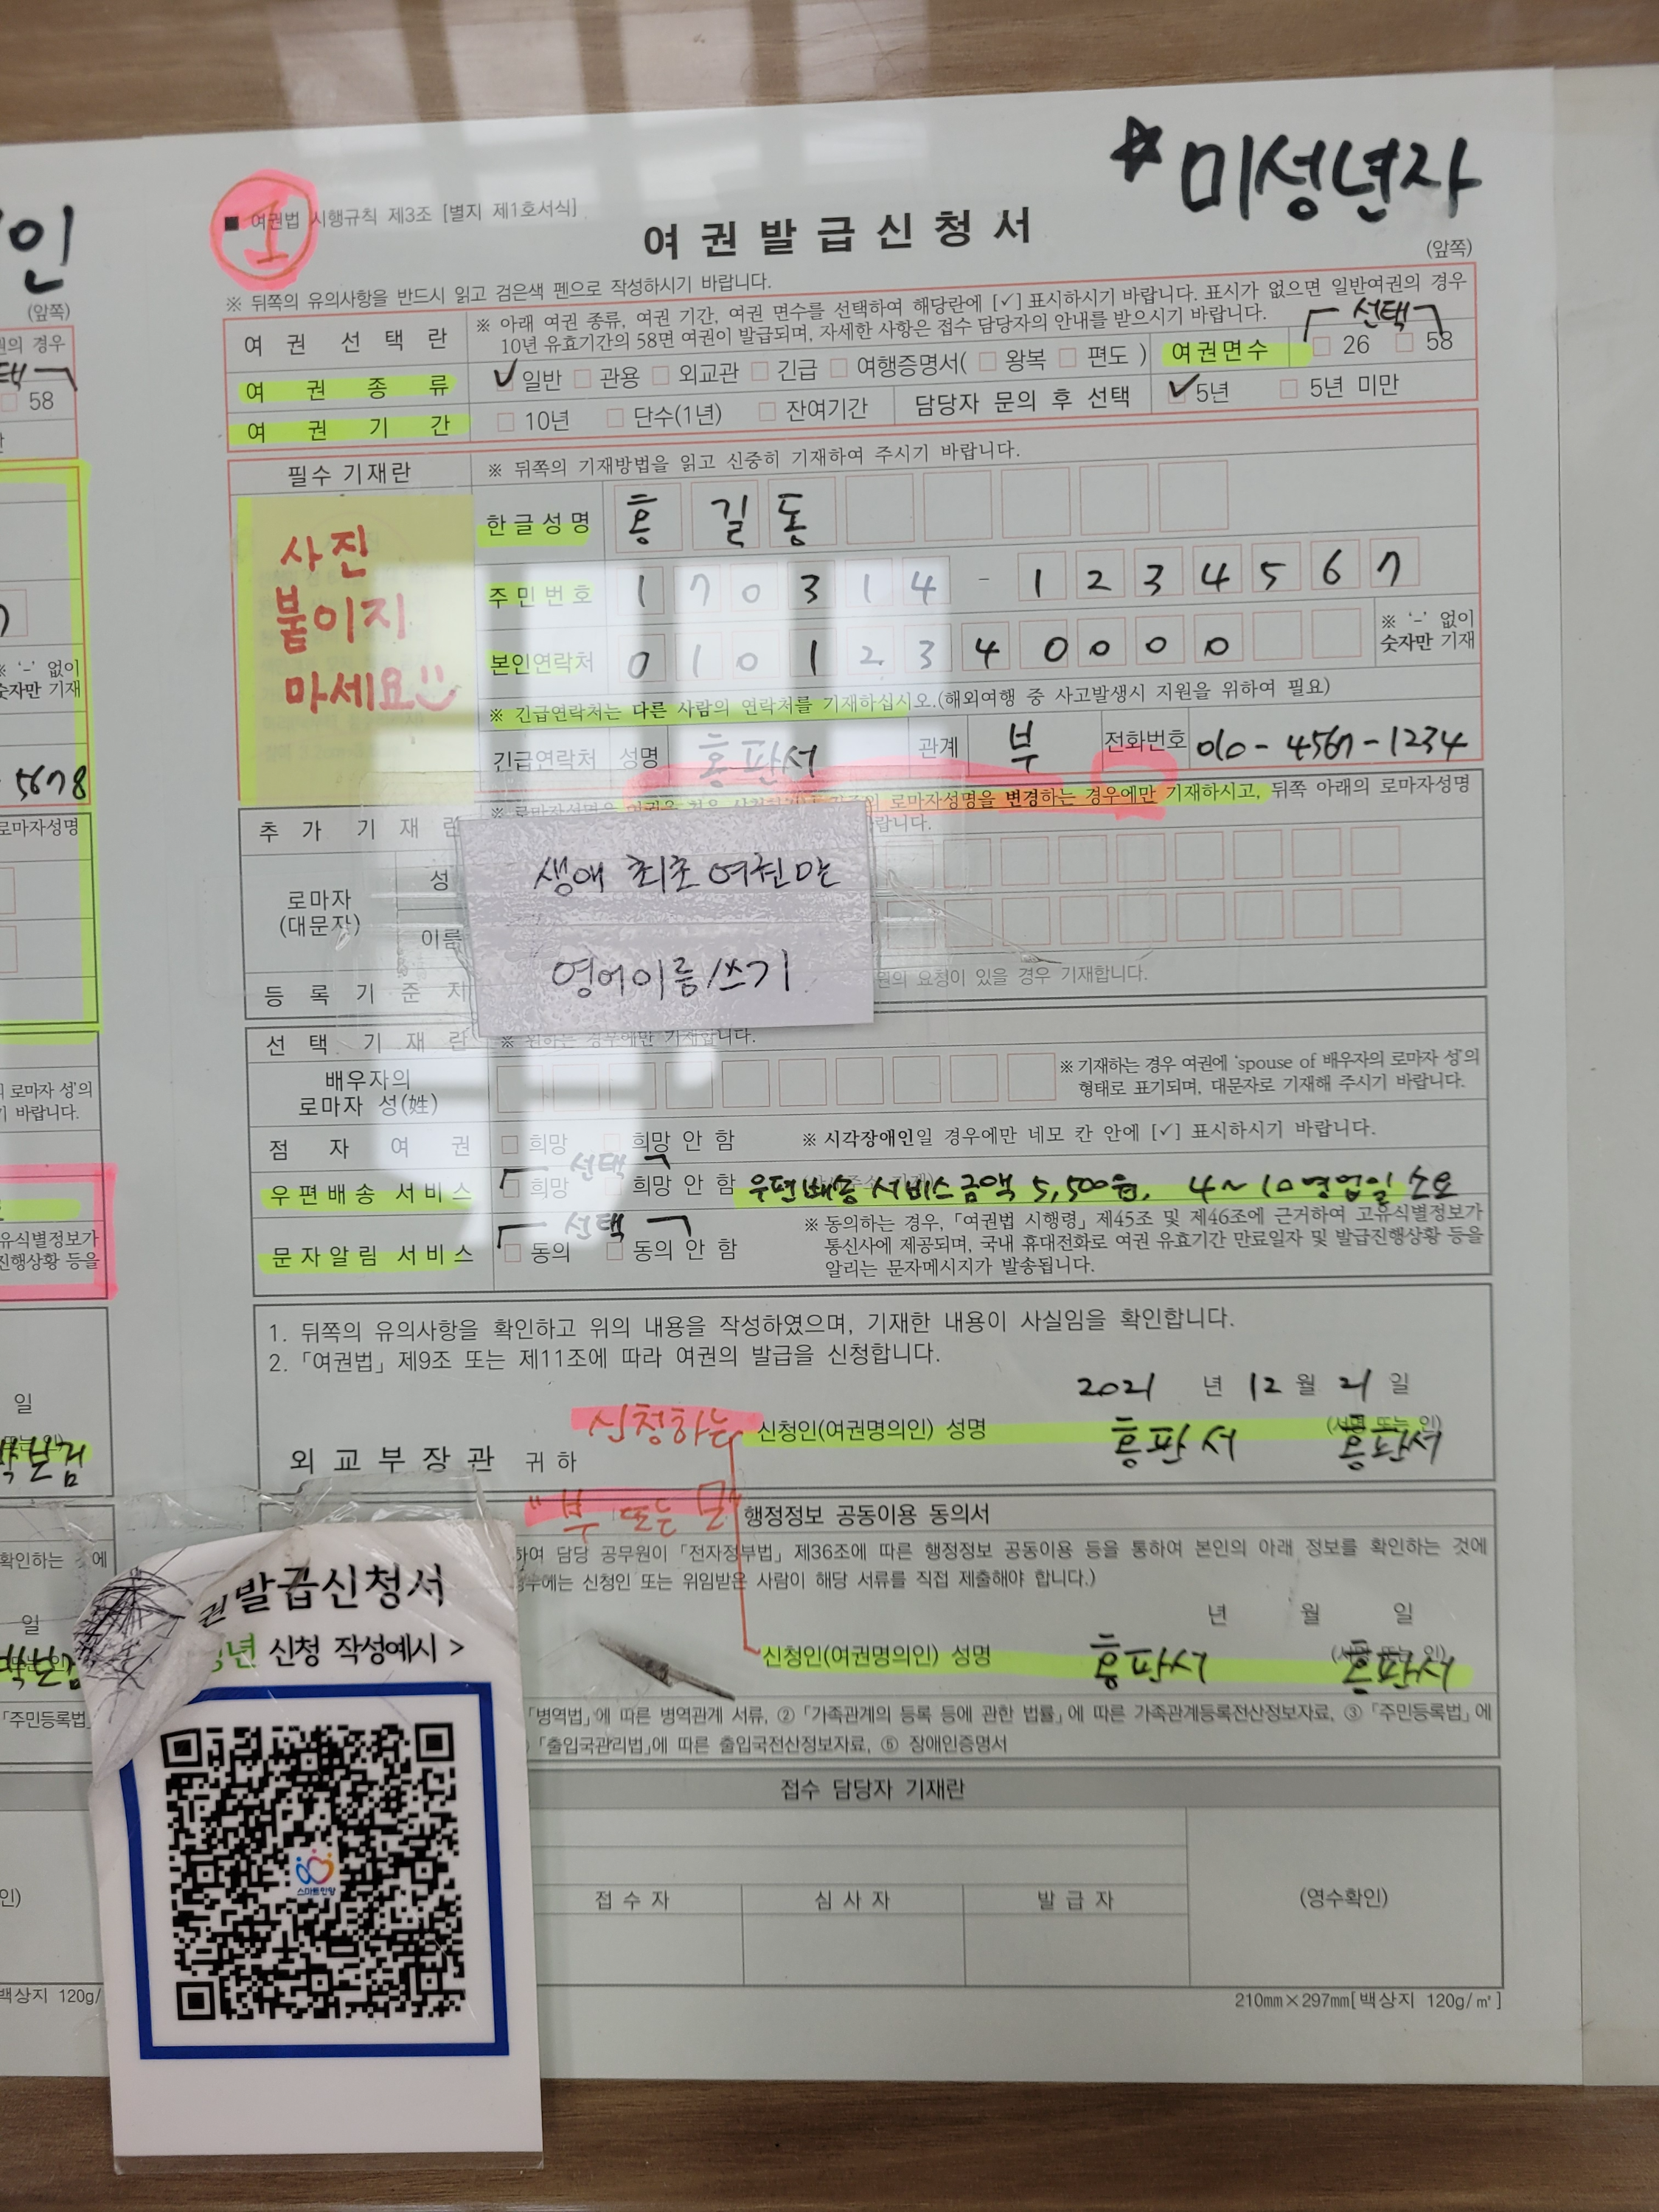 인
(앞쪽)
권의 경우
58
5678
로마자성명
로마자 성'의
기 바랍니다.
유식별정보가
진행상황 등을
일
박보검
확인하는 것에
일
박보검
「주민등록법」
인)
백상지 120g/
☆ 미성년자
1
■ 여권법 시행규칙 제3조 [별지 제1호서식]
여권발급신청서
(앞쪽)
※ 뒤쪽의 유의사항을 반드시 읽고 검은색 펜으로 작성하시기 바랍니다.
여권 선택란 ※ 아래 여권 종류, 여권 기간, 여권 면수를 선택하여 해당란에 [✓] 표시하시기 바랍니다. 표시가 없으면 일반여권의 경우
10년 유효기간의 58면 여권이 발급되며, 자세한 사항은 접수 담당자의 안내를 받으시기 바랍니다.
선택
여권종류 ✓ 일반 □ 관용 □ 외교관 □ 긴급 □ 여행증명서( □ 왕복 □ 편도 ) 여권면수 □ 26 □ 58
여권기간 □ 10년 □ 단수(1년) □ 잔여기간 담당자 문의 후 선택 ✓ 5년 □ 5년 미만
필수 기재란 ※ 뒤쪽의 기재방법을 읽고 신중히 기재하여 주시기 바랍니다.
사진
붙이지
마세요
한글성명 홍 길 동
주민번호 1 7 0 3 1 4 - 1 2 3 4 5 6 7
본인연락처 0 1 0 1 2 3 4 0 0 0 0 ※ '-' 없이
숫자만 기재
※ 긴급연락처는 다른 사람의 연락처를 기재하십시오.(해외여행 중 사고발생시 지원을 위하여 필요)
긴급연락처 성명 홍판서 관계 부 전화번호 010-4567-1234
추가 기재란 로마자성명을 변경하는 경우에만 기재하시고, 뒤쪽 아래의 로마자성명
랍니다.
로마자
(대문자)
성
이름
생애 최초 여권만
영어이름 쓰기
등록기준지 원의 요청이 있을 경우 기재합니다.
선택 기재란 ※ 원하는 경우에만 기재합니다.
배우자의
로마자 성(姓)
※ 기재하는 경우 여권에 'spouse of 배우자의 로마자 성'의
형태로 표기되며, 대문자로 기재해 주시기 바랍니다.
점자여권 □ 희망 □ 희망 안 함 ※ 시각장애인일 경우에만 네모 칸 안에 [✓] 표시하시기 바랍니다.
선택
우편배송 서비스 □ 희망 □ 희망 안 함 우편배송 서비스 금액 5,500원. 4~10영업일 소요
선택
문자알림 서비스 □ 동의 □ 동의 안 함
※ 동의하는 경우, 「여권법 시행령」 제45조 및 제46조에 근거하여 고유식별정보가
통신사에 제공되며, 국내 휴대전화로 여권 유효기간 만료일자 및 발급진행상황 등을
알리는 문자메시지가 발송됩니다.
1. 뒤쪽의 유의사항을 확인하고 위의 내용을 작성하였으며, 기재한 내용이 사실임을 확인합니다.
2. 「여권법」 제9조 또는 제11조에 따라 여권의 발급을 신청합니다.
2021 년 12 월 21 일
신청하는 신청인(여권명의인) 성명 홍판서 (서명 또는 인) 홍판서
외교부장관 귀하
"부 또는 모"
행정정보 공동이용 동의서
하여 담당 공무원이 「전자정부법」 제36조에 따른 행정정보 공동이용 등을 통하여 본인의 아래 정보를 확인하는 것에
경우에는 신청인 또는 위임받은 사람이 해당 서류를 직접 제출해야 합니다.)
년 월 일
신청인(여권명의인) 성명 홍판서 홍판서
「병역법」에 따른 병역관계 서류, ② 「가족관계의 등록 등에 관한 법률」에 따른 가족관계등록전산정보자료, ③ 「주민등록법」에
「출입국관리법」에 따른 출입국전산정보자료, ⑤ 장애인증명서
접수 담당자 기재란
접수자 심사자 발급자 (영수확인)
210mm×297mm[백상지 120g/㎡]
권발급신청서
년 신청 작성예시 >
스마트민원